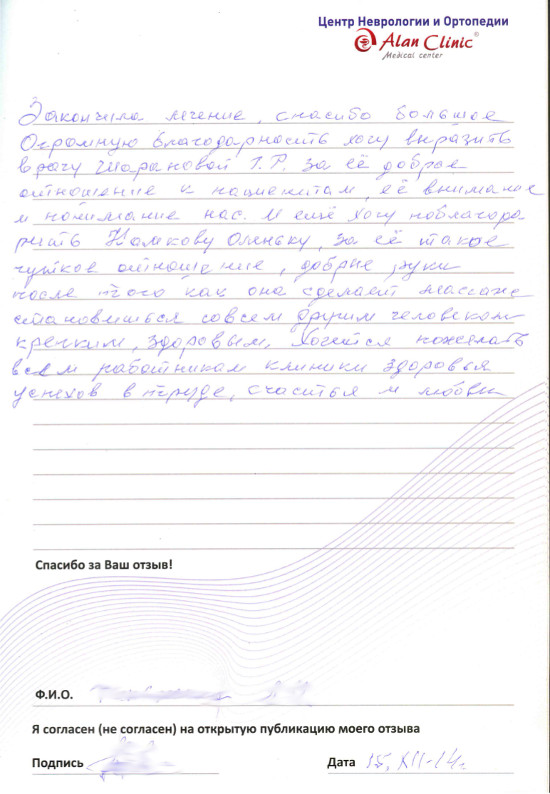 Центр Неврологии и Ортопедии
Alan Clinic
Medical center
Закончила лечение, спасибо большое
Огромную благодарность хочу выразить
врачу Шарановой Г.Р. за её доброе
отношение к пациентам, её внимание
и понимание нас. И ещё хочу поблагода
рить Камкову Оленьку, за её такое
чуткое отношение, добрые руки
после того как она сделает массаж
становишься совсем другим человеком
крепким, здоровым, хочется пожелать
всем работникам клиники здоровья
успехов в труде, счастья и любви
Спасибо за Ваш отзыв!
Ф.И.О.
Я согласен (не согласен) на открытую публикацию моего отзыва
Подпись Дата 15. XII-14г.